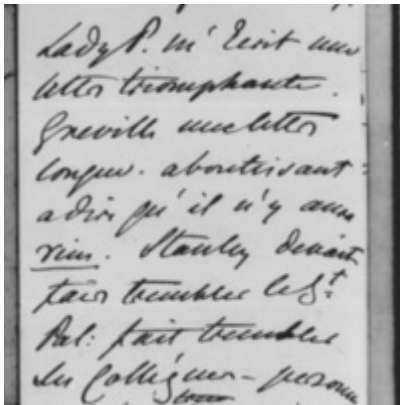 Lady P. m'écrit une
lettre triomphante.
Greville une lettre
longue. aboutissant
a dire qu'il n'y aura
rien. Stanley devait
faire trembler le Gt
Pal: fait trembler
ses Collègues - personne